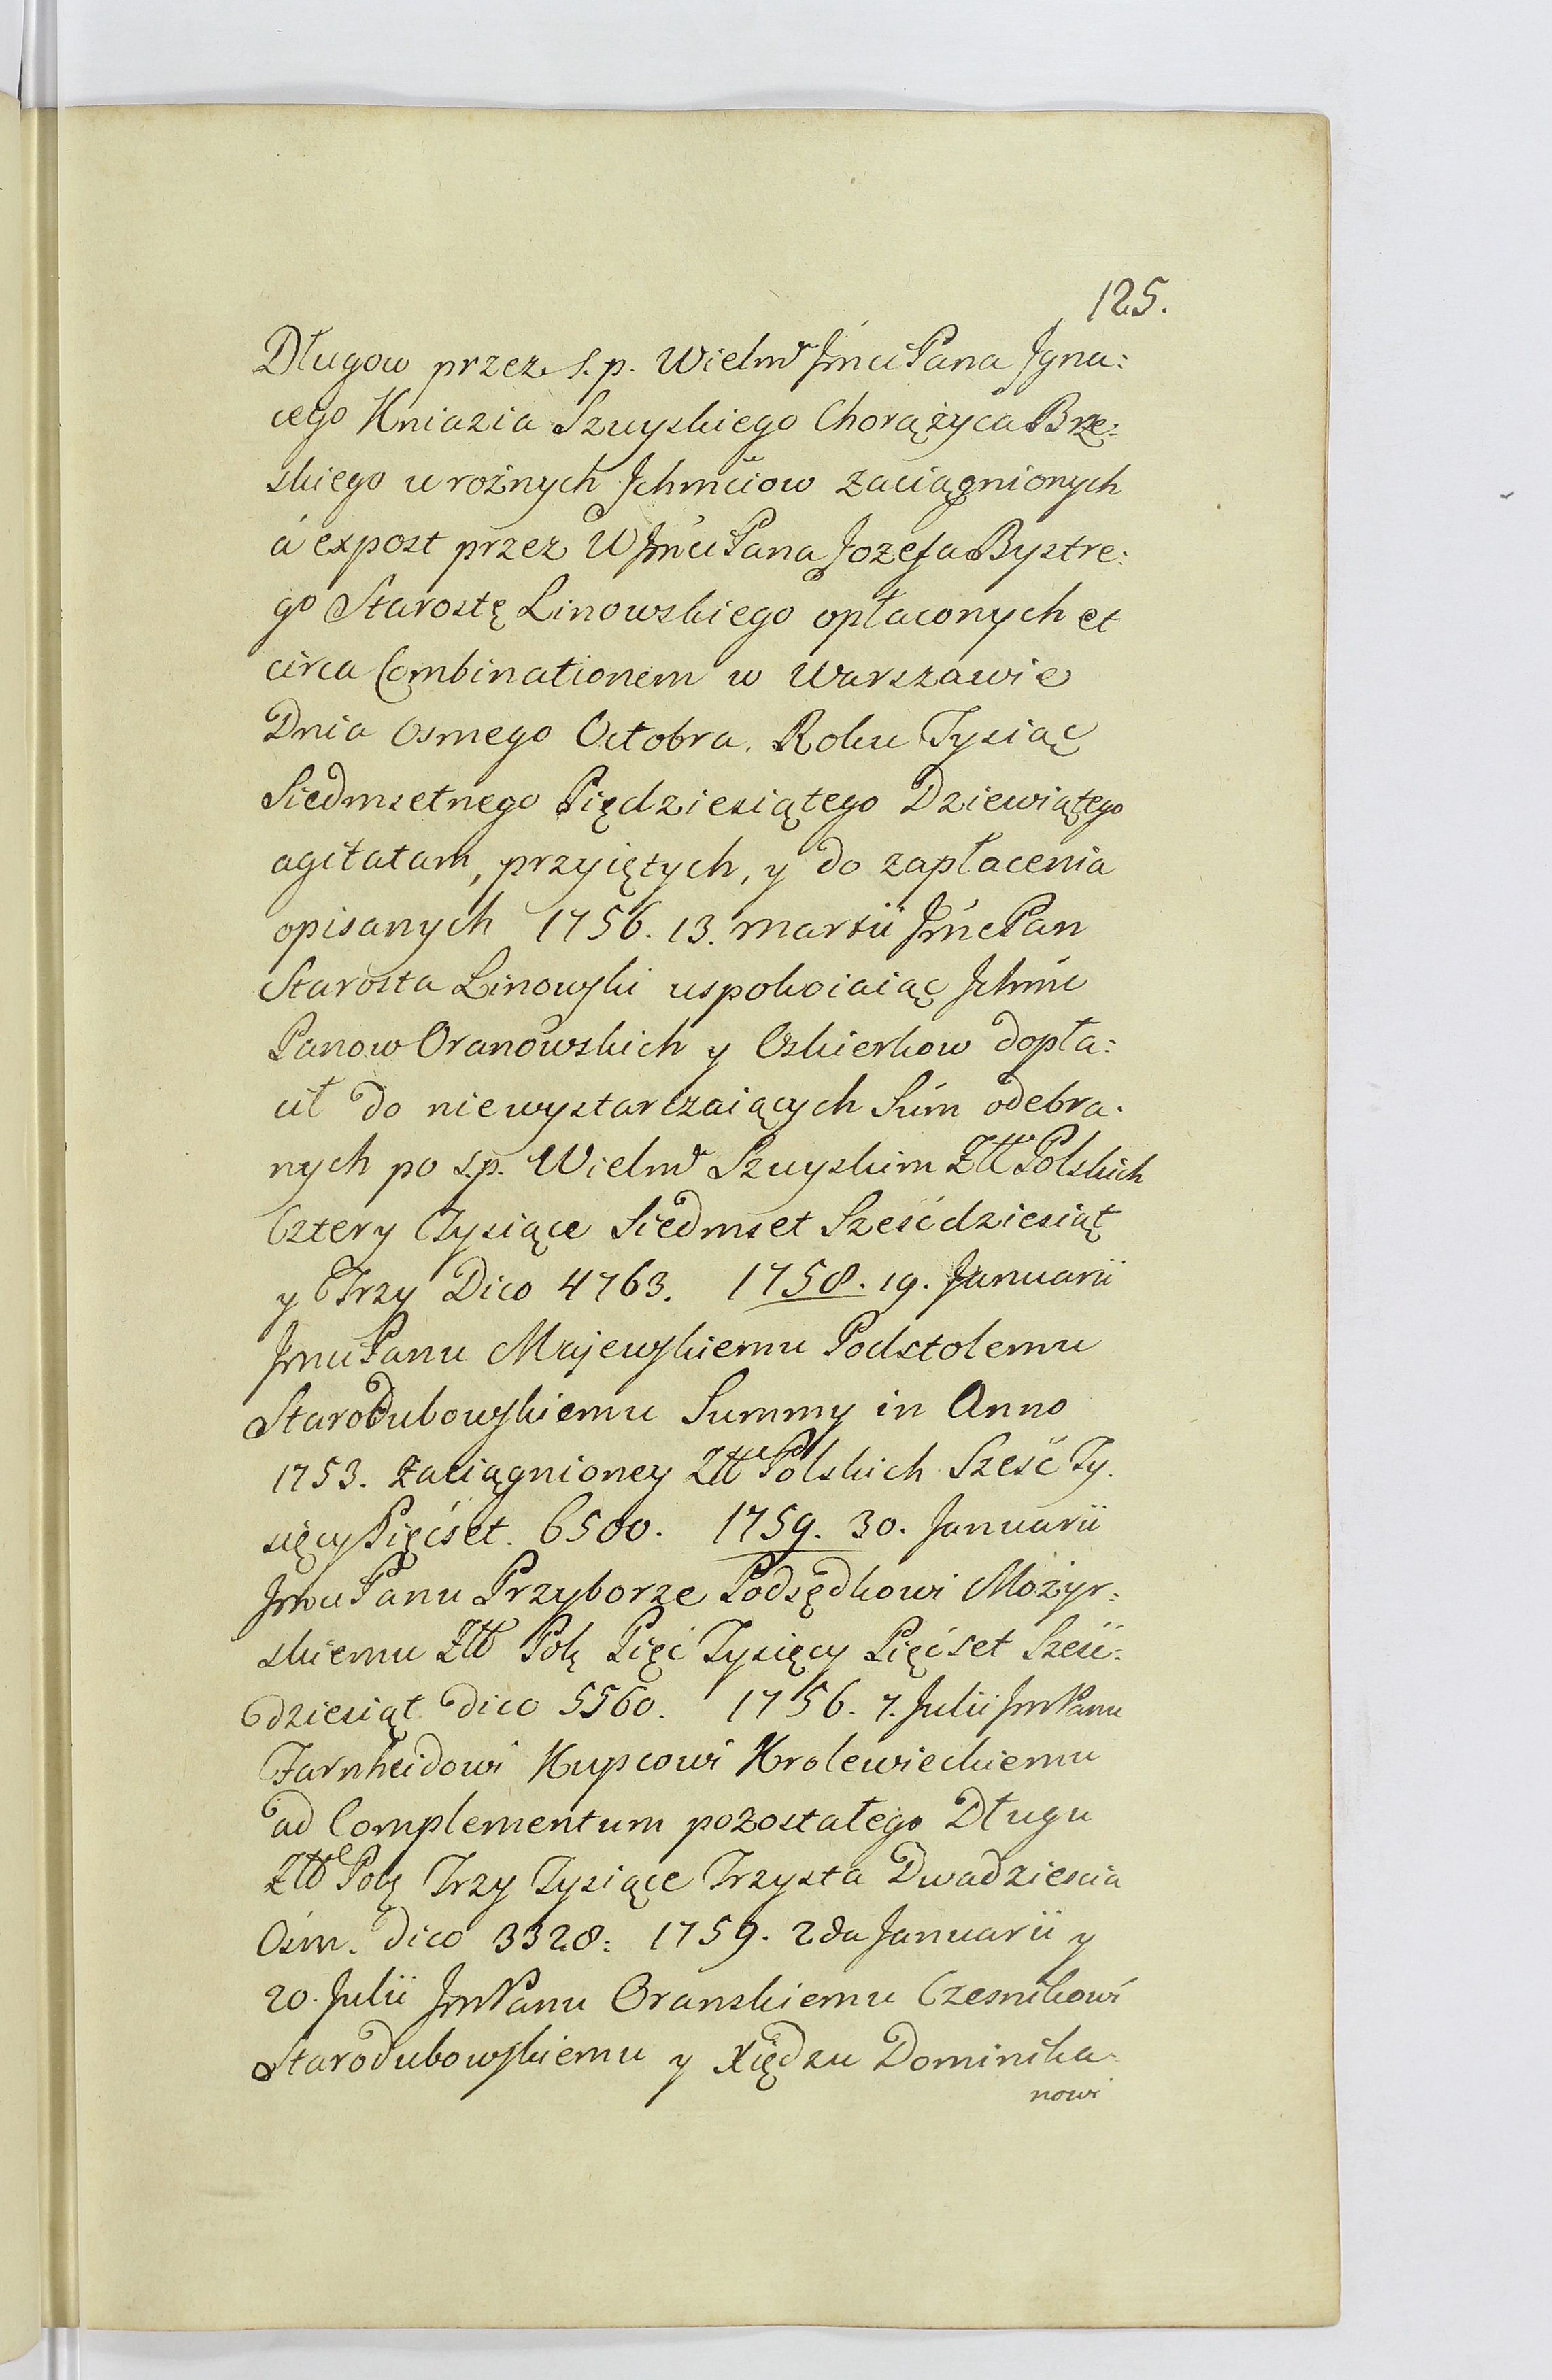 125.
Długow przez s. p. Wielmo Jmci Pana Jgna:
cego Kniazia Szuyskiego Chorążyca Brze:
skiego u rożnych Jchmciow zaciągnionych
á expost przez WJmci Pana Jozefa Bystre:
go Starostę Linowskiego opłaconych et
circa Combinationem w Warszawie
Dnia osmego Octobra. Roku Tysiąc
Siedmsetnego Pięćdziesiątego Dziewiątego
agitatam, przyiętych, y do zapłacenia
opisanych 1756. 13. martii Jmć Pan
Starosta Linowski uspokoiaiąc Jchmc
Panow Oranowskich y Oskierkow dopła:
cił do niewystarczaiących Sum odebra.
nych po s.p. Wielmo Szuyskim Złt Polskich
Cztery Tysiące Siedmset Sześćdziesiąt
y Trzy Dico 4763. 1758. 19. Januarii
Jmci Panu Majewskiemu Podstolemu
Starodubowskiemu Summy in Anno
1753. zaciągnioney Złt Polskich Sześć Ty.
sięcy Pięćset. 6500. 1759. 30. Januarii
Jmci Panu Przyborze Podsędkowi Możyr:
skiemu Złt Pol. Pięć Tysięcy Pięćset Sześć:
dziesiąt dico 5560. 1756. 7. Julii Jm Panu
Farnheidowi Kupcowi Krolewieckiemu
ad Complementum pozostałego Długu
Złt Pol. Trzy Tysiące Trzysta Dwadziescia
Ośm. dico 3328: 1759. 2da Januarii y
20. Julii Jm Panu Oranskiemu Czesnikowi
Starodubowskiemu y Xiędzu Dominika:
nowi